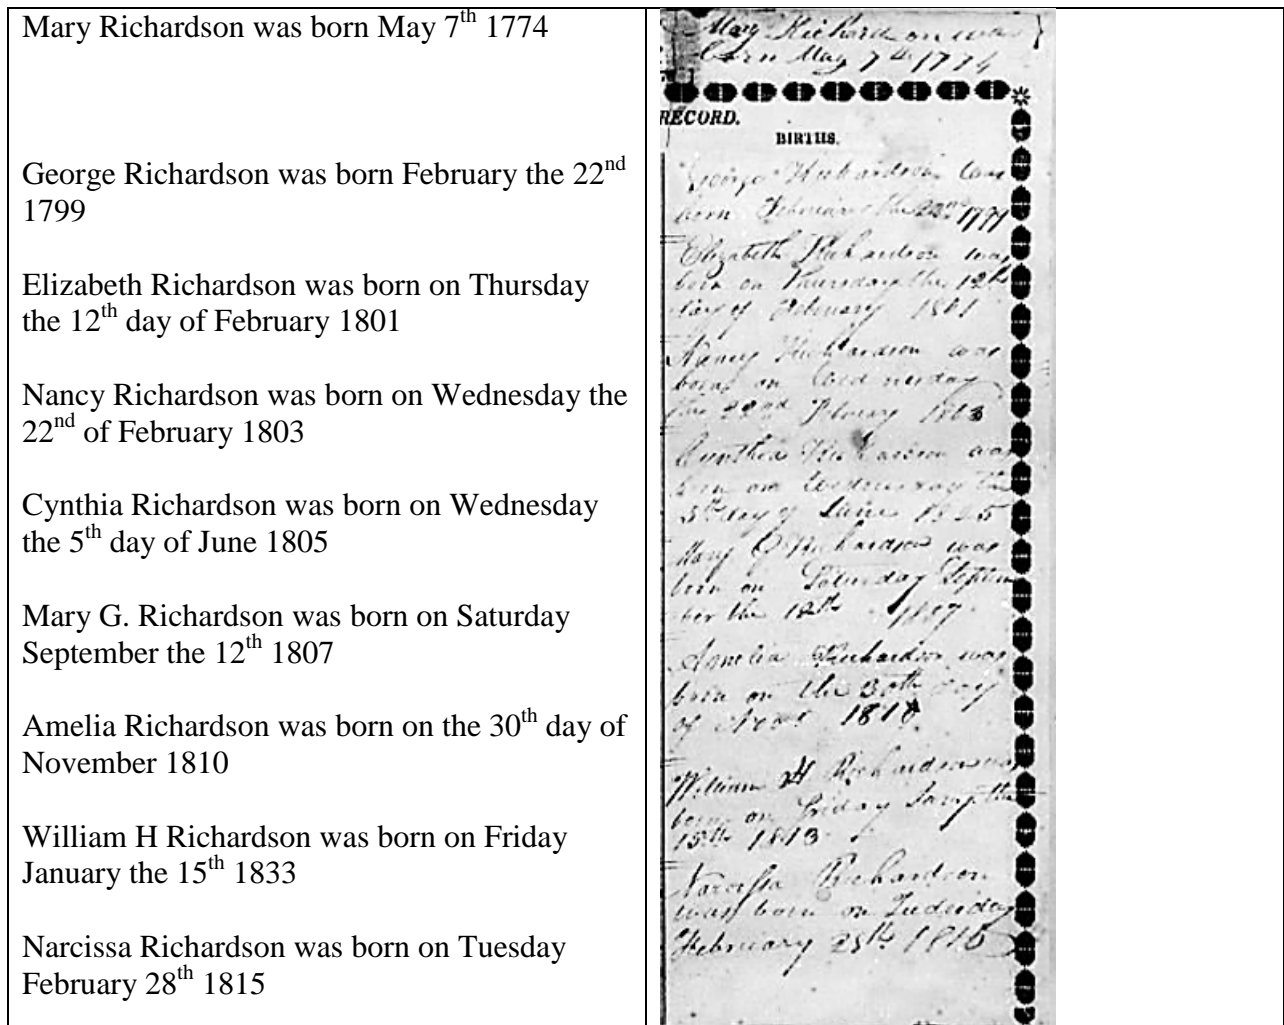 Mary Richardson was born May 7th 1774
George Richardson was born February the 22nd
1799
Elizabeth Richardson was born on Thursday
the 12th day of February 1801
Nancy Richardson was born on Wednesday the
22nd of February 1803
Cynthia Richardson was born on Wednesday
the 5th day of June 1805
Mary G. Richardson was born on Saturday
September the 12th 1807
Amelia Richardson was born on the 30th day of
November 1810
William H Richardson was born on Friday
January the 15th 1833
Narcissa Richardson was born on Tuesday
February 28th 1815
Mary Richardson was
born May 7th 1774
RECORD.
BIRTHS.
George Richardson was
born February the 22nd 1799
Elizabeth Richardson was
born on Thursday the 12th
day of February 1801
Nancy Richardson was
born on Wednesday
the 22nd February 1803
Cynthia Richardson was
born on Wednesday the
5th day of June 1805
Mary G Richardson was
born on Saturday Septem
ber the 12th 1807
Amelia Richardson was
born on the 30th day
of 1810
William H Richardson was
born on Friday the
15th 1813
Narcissa Richardson
was born on
February 28th 1815